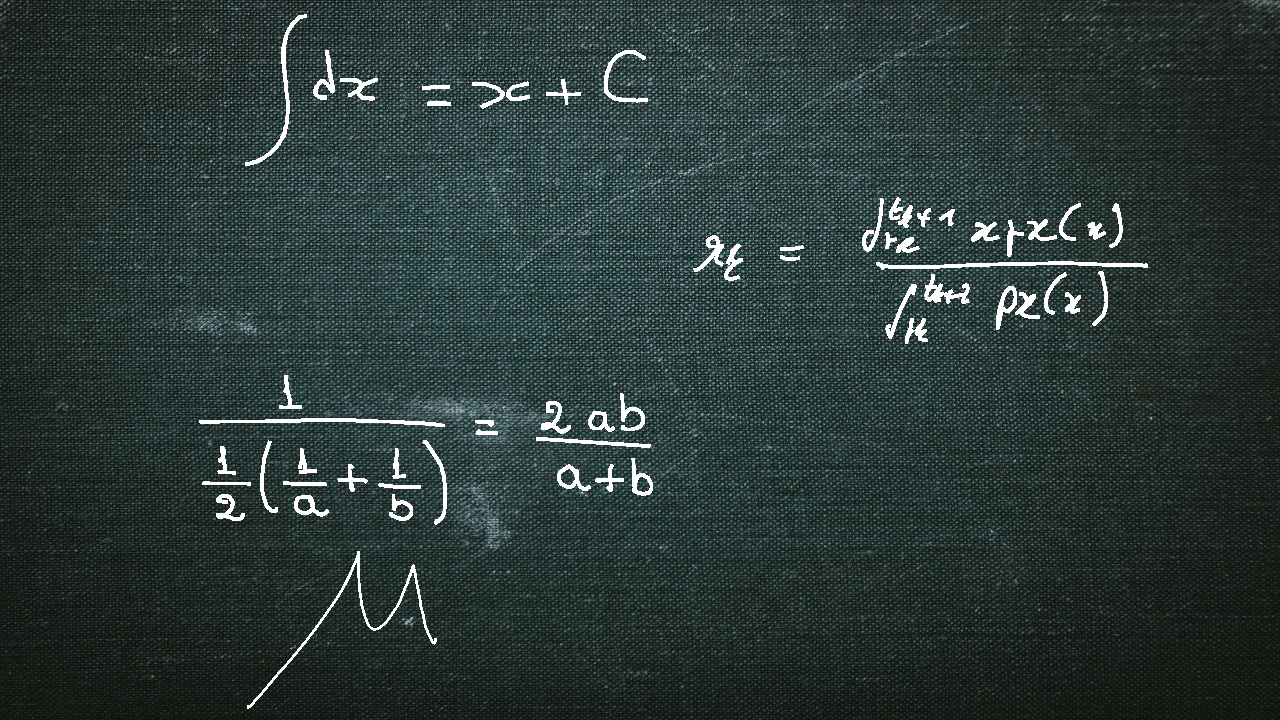 ∫ dx = x + C
x_k = ∫_{t_k}^{t_{k+1}} x p x(x) / ∫_{t_k}^{t_{k+1}} p x(x)
1 / (1/2 (1/a + 1/b)) = 2ab / (a+b)
μ